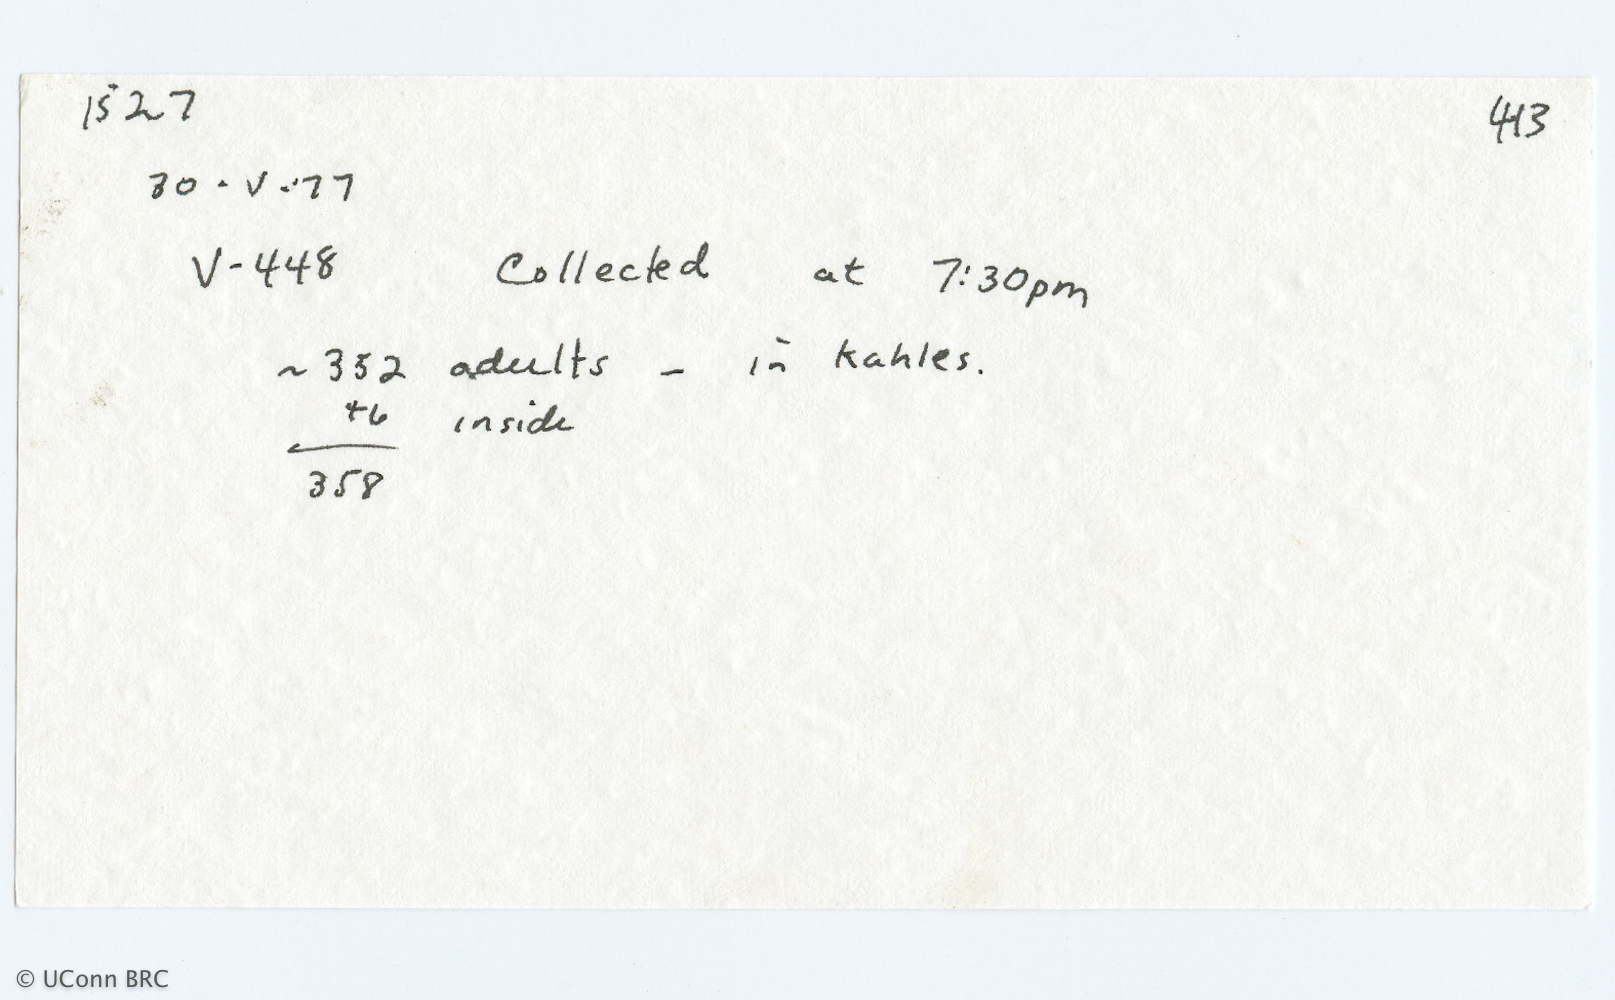 1527
413
30-V-'77
V-448 Collected at 7:30pm
~352 adults - in Kahles.
+6 inside
358
© UConn BRC